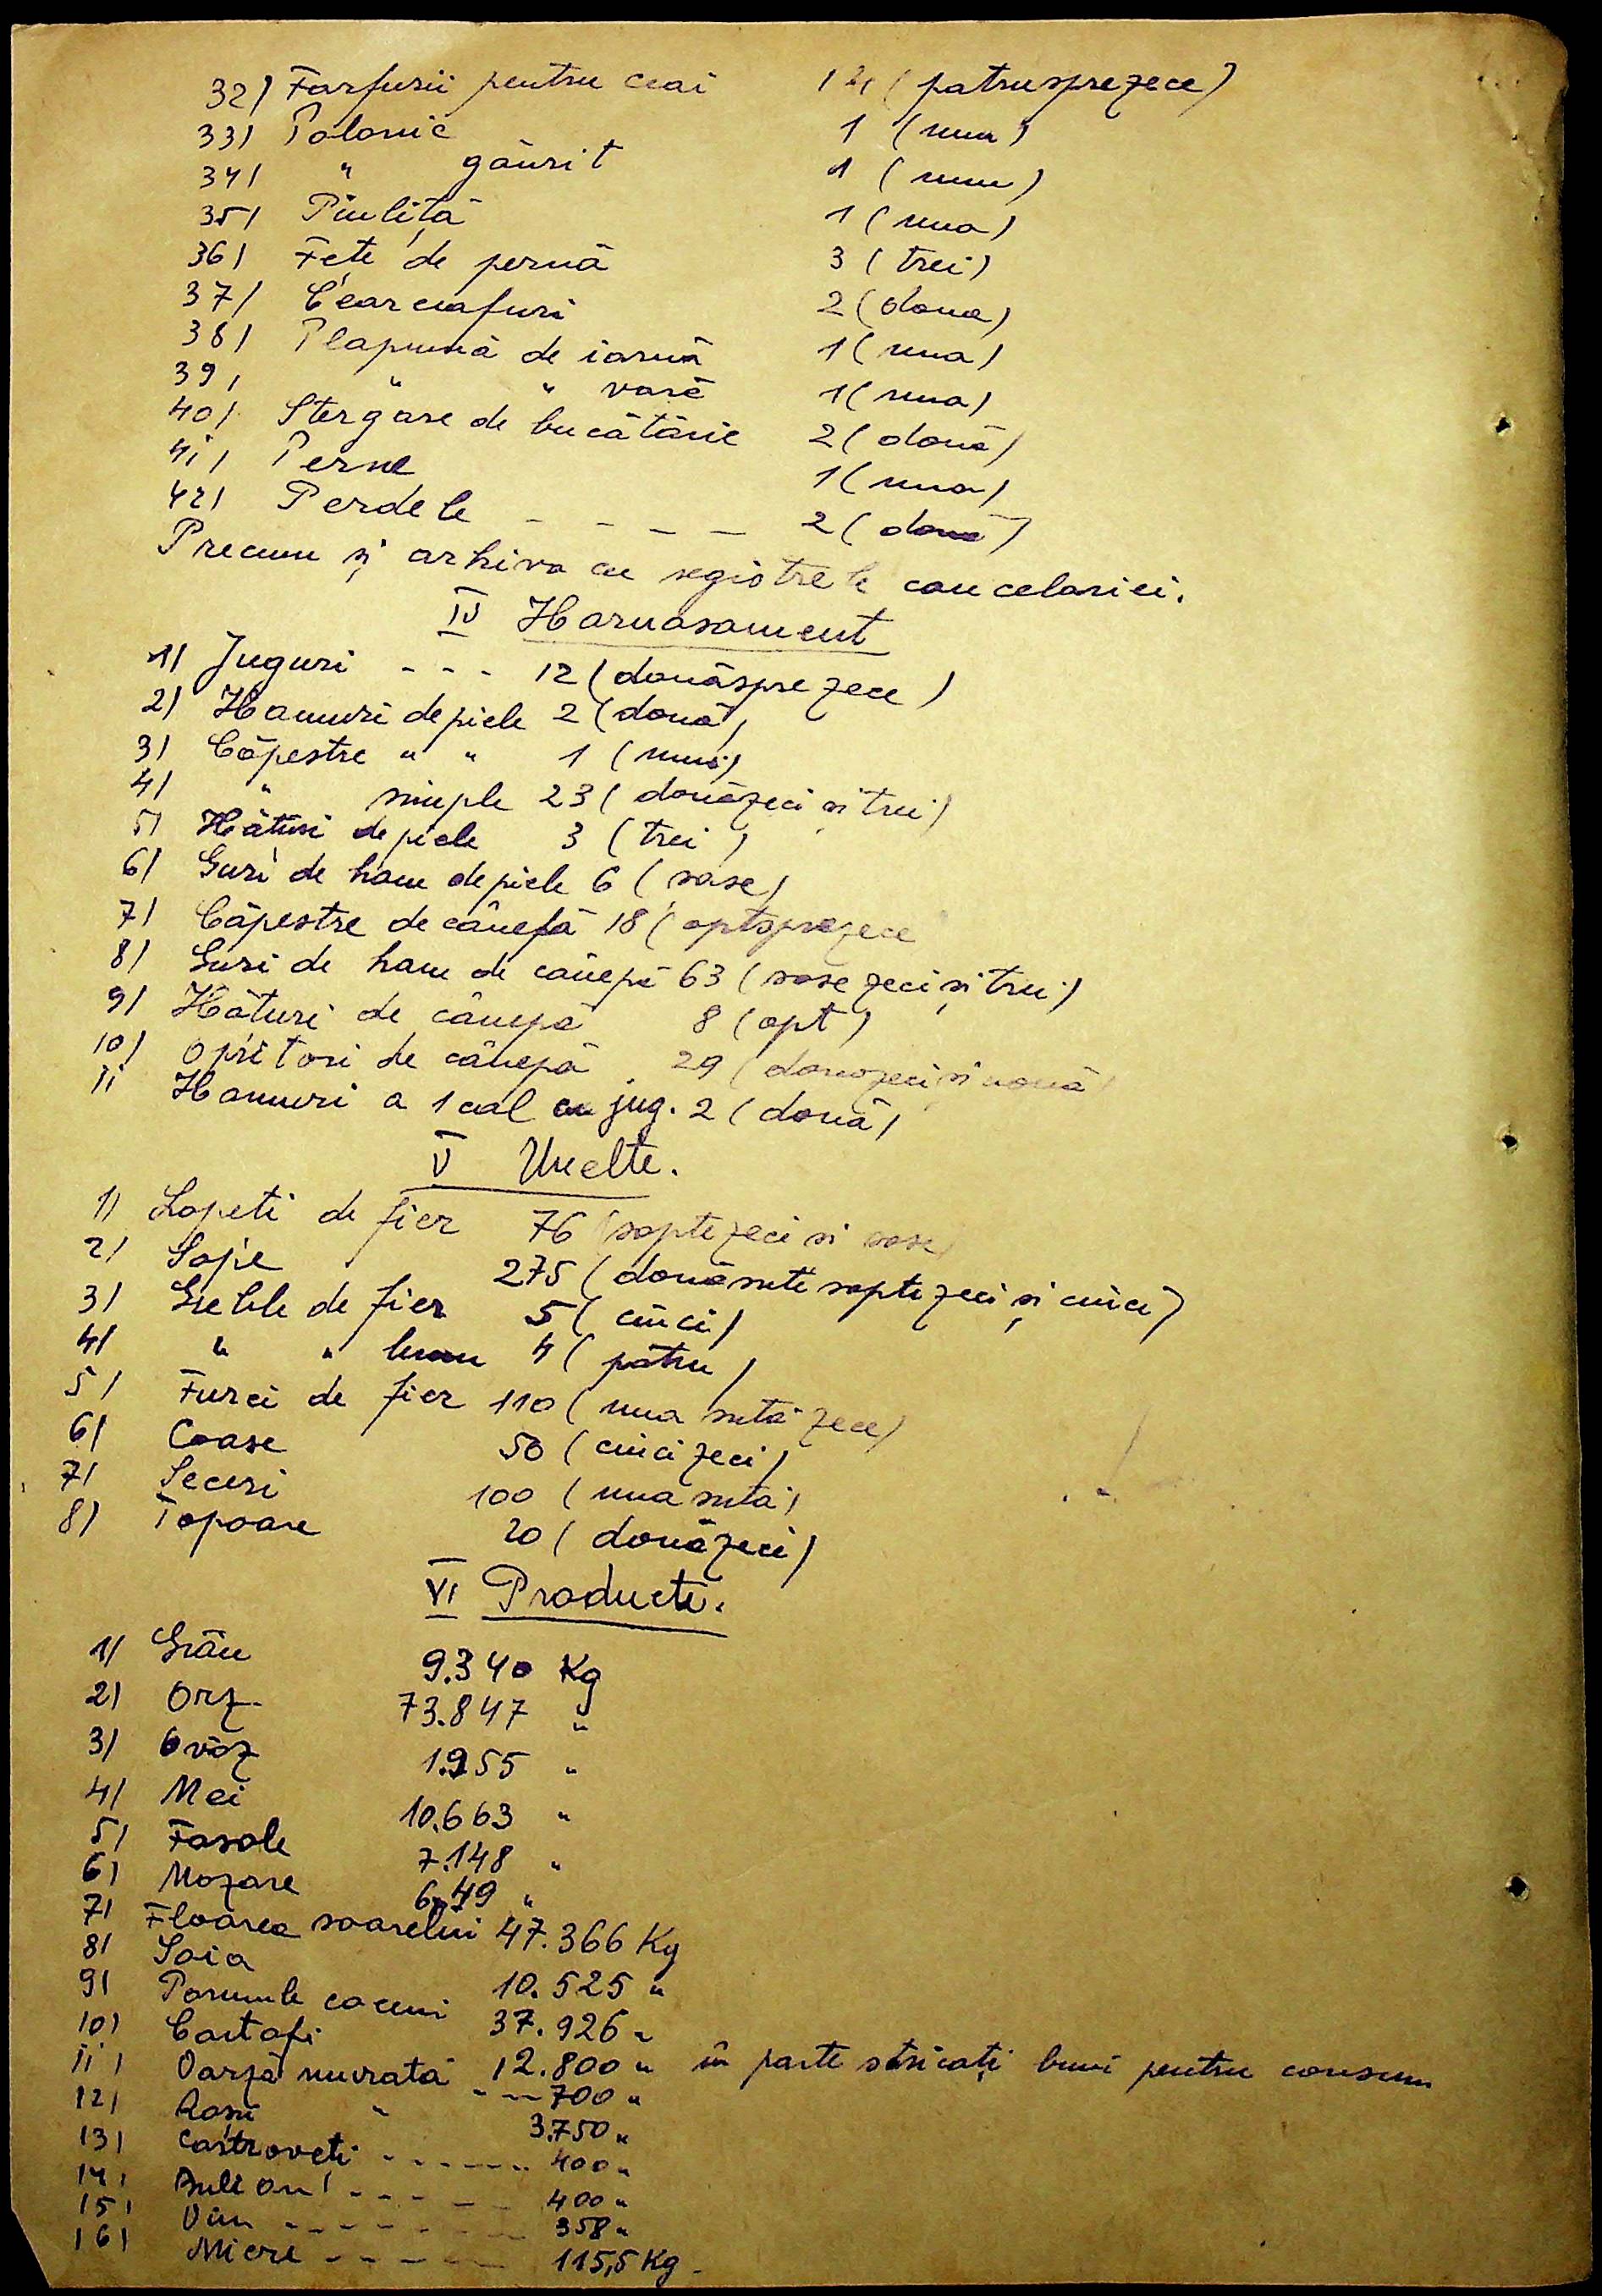 32) Farfurii pentru ceai 14 (patrusprezece)
33) Polonic 1 (unu)
34) " găurit 1 (unu)
35) Piuliță 1 (una)
36) Fețe de pernă 3 (trei)
37) Cearceafuri 2 (doua)
38) Plapumă de iarnă 1 (una)
39) " " vară 1 (una)
40) Stergare de bucătărie 2 (două)
41) Perne 1 (una)
42) Perdele - - - - 2 (două)
Precum și arhiva cu registrele cancelariei.
IV Harnasament
1) Juguri - - - 12 (douăsprezece)
2) Hamuri de piele 2 (două)
3) Căpestre " " 1 (unu)
4) " simple 23 (douăzeci și trei)
5) Hături de piele 3 (trei)
6) Guri de ham de piele 6 (sase)
7) Căpestre de cânepă 18 (optsprezece
8) Guri de ham de cânepă 63 (sasezeci și trei)
9) Hături de cânepă 8 (opt)
10) Opritori de cânepă 29 (douăzeci și nouă)
11 Hamuri a 1 cal cu jug. 2 (două)
V Unelte.
1) Lopeti de fier 76 (saptezeci si sase)
2) Sape 275 (douăsute saptezeci și cinci)
3) Greble de fier 5 (cinci)
4) " " lemn 4 (patru)
5) Furci de fier 110 (una sută zece)
6) Coase 50 (cincizeci)
7) Seceri 100 (una sută)
8) Topoare 20 (douăzeci)
VI Producte.
1) Grâu 9.340 Kg
2) Orz 73.847 "
3) Ovăz 1.955 "
4) Mei 10.663 "
5) Fasole 7.148 "
6) Mazare "
7) Floarea soarelui 47.366 Kg
8) Soia 10.525 "
9) Porumb coceni 37.926 "
10) Cartofi 12.800 " în parte stricați buni pentru consum
11) Varză murată - - 700 "
12) Roșii " 3.750 "
13) Castroveți - - - - - - 400 "
14) Bulion - - - - - 400 "
15) Vin - - - - - - - 358 "
16) Miere - - - - - 115,5 Kg -